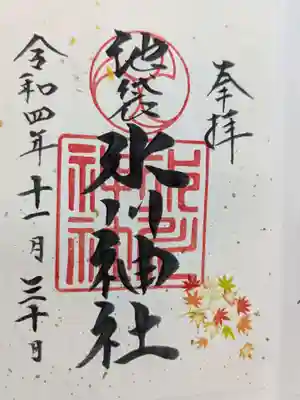 奉拝
池袋氷川神社
令和四年十一月三十日